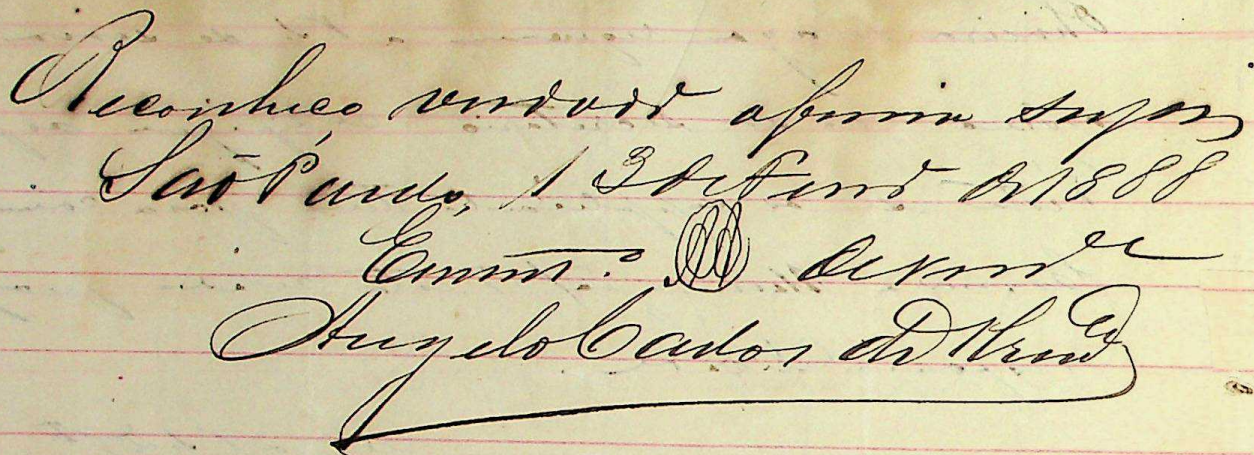 Reconheço verdadr a firma supra
São Paulo, 13 de Fevro de 1888
Em testº de verdde
Angelo Carlos de